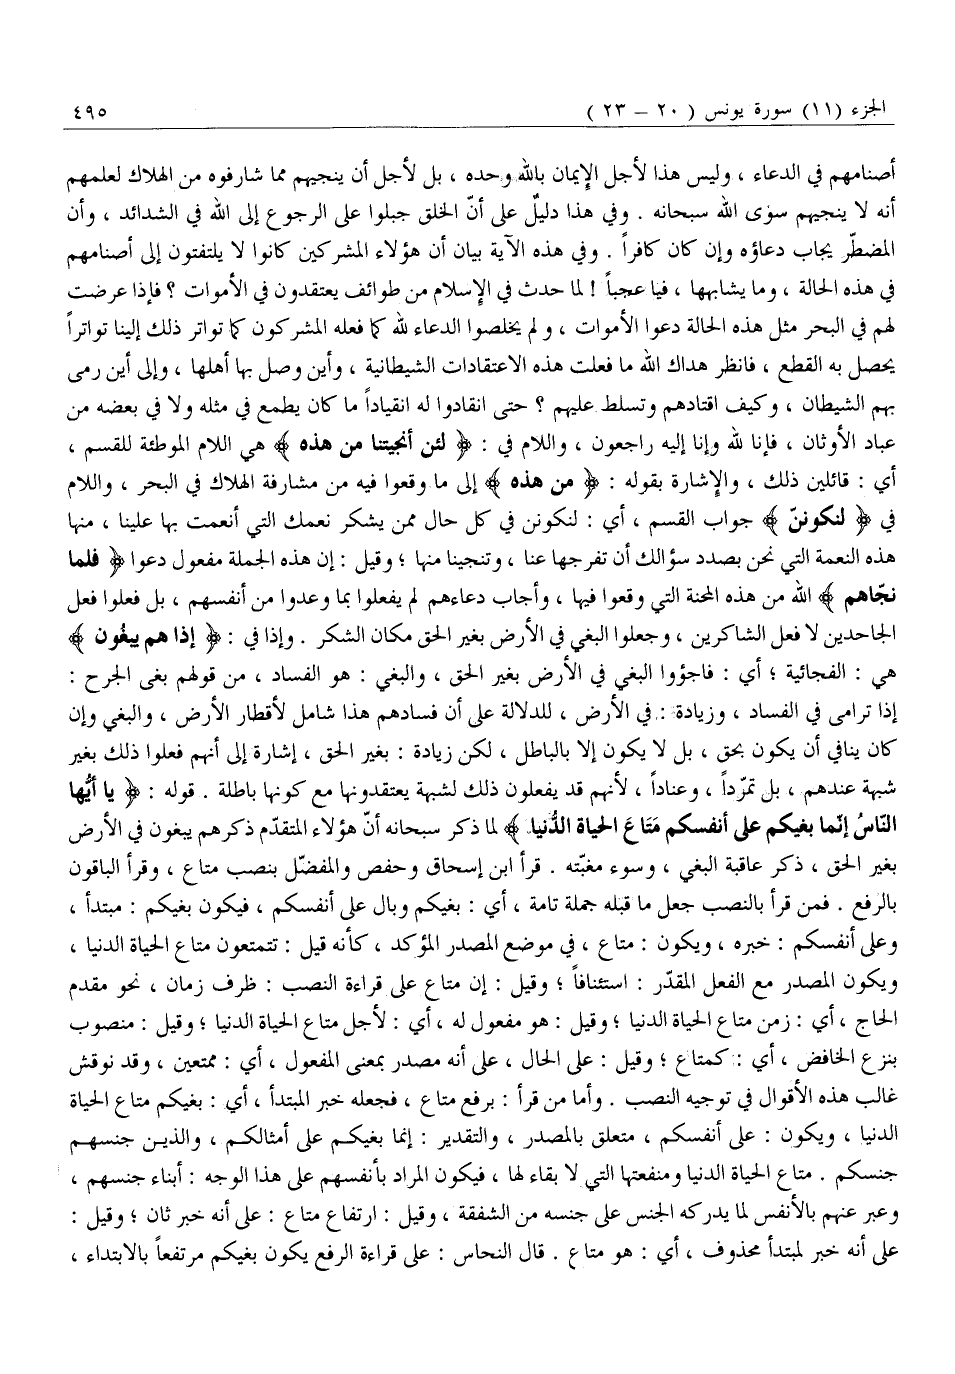 الجزء (١١) سورة يونس ( ٢٠ – ٢٣ ) ٤٩٥
أصنامهم في الدعاء ، وليس هذا لأجل الإِيمان بالله وحده ، بل لأجل أن ينجيهم مما شارفوه من الهلاك لعلمهم
أنه لا ينجيهم سوى الله سبحانه . وفي هذا دليلٌ على أنّ الخلق جبلوا على الرجوع إلى الله في الشدائد ، وأن
المضطرّ يجاب دعاؤه وإن كان كافراً . وفي هذه الآية بيان أن هؤلاء المشركين كانوا لا يلتفتون إلى أصنامهم
في هذه الحالة ، وما يشابهها ، فيا عجباً ! لما حدث في الإِسلام من طوائف يعتقدون في الأموات ؟ فإذا عرضت
لهم في البحر مثل هذه الحالة دعوا الأموات ، ولم يخلصوا الدعاء لله كما فعله المشركون كما تواتر ذلك إلينا تواتراً
يحصل به القطع ، فانظر هداك الله ما فعلت هذه الاعتقادات الشيطانية ، وأين وصل بها أهلها ، وإلى أين رمى
بهم الشيطان ، وكيف اقتادهم وتسلط عليهم ؟ حتى انقادوا له انقياداً ما كان يطمع في مثله ولا في بعضه من
عباد الأوثان ، فإنا لله وإنا إليه راجعون ، واللام في : ﴿ لئن أنجيتنا من هذه ﴾ هي اللام الموطئة للقسم ،
أي : قائلين ذلك ، والإِشارة بقوله : ﴿ من هذه ﴾ إلى ما وقعوا فيه من مشارفة الهلاك في البحر ، واللام
في ﴿ لنكوننّ ﴾ جواب القسم ، أي : لنكونن في كل حال ممن يشكر نعمك التي أنعمت بها علينا ، منها
هذه النعمة التي نحن بصدد سؤالك أن تفرجها عنا ، وتنجينا منها ؛ وقيل : إن هذه الجملة مفعول دعوا ﴿ فلما
نجّاهم ﴾ الله من هذه المحنة التي وقعوا فيها ، وأجاب دعاءهم لم يفعلوا بما وعدوا من أنفسهم ، بل فعلوا فعل
الجاحدين لا فعل الشاكرين ، وجعلوا البغي في الأرض بغير الحق مكان الشكر . وإذا في : ﴿ إذا هم يبغُون ﴾
هي : الفجائية ؛ أي : فاجؤوا البغي في الأرض بغير الحق ، والبغي : هو الفساد ، من قولهم بغى الجرح :
إذا ترامى في الفساد ، وزيادة : في الأرض ، للدلالة على أن فسادهم هذا شامل لأقطار الأرض ، والبغي وإن
كان ينافي أن يكون بحق ، بل لا يكون إلا بالباطل ، لكن زيادة : بغير الحق ، إشارة إلى أنهم فعلوا ذلك بغير
شبهة عندهم ، بل تمرّداً ، وعناداً ، لأنهم قد يفعلون ذلك لشبهة يعتقدونها مع كونها باطلة . قوله : ﴿ يا أيُّها
النّاسُ إنّما بغيكم على أنفسكم مَتَاعَ الحياة الدُّنيا ﴾ لما ذكر سبحانه أنّ هؤلاء المتقدّم ذكرهم يبغون في الأرض
بغير الحق ، ذكر عاقبة البغي ، وسوء مغبّته . قرأ ابن إسحاق وحفص والمفضّل بنصب متاع ، وقرأ الباقون
بالرفع . فمن قرأ بالنصب جعل ما قبله جملة تامة ، أي : بغيكم وبال على أنفسكم ، فيكون بغيكم : مبتدأ ،
وعلى أنفسكم : خبره ، ويكون : متاع ، في موضع المصدر المؤكد ، كأنه قيل : تتمتعون متاع الحياة الدنيا ،
ويكون المصدر مع الفعل المقدّر : استئنافاً ؛ وقيل : إن متاع على قراءة النصب : ظرف زمان ، نحو مقدم
الحاج ، أي : زمن متاع الحياة الدنيا ؛ وقيل : هو مفعول له ، أي : لأجل متاع الحياة الدنيا ؛ وقيل : منصوب
بنزع الخافض ، أي : كمتاع ؛ وقيل : على الحال ، على أنه مصدر بمعنى المفعول ، أي : ممتعين ، وقد نوقش
غالب هذه الأقوال في توجيه النصب . وأما من قرأ : برفع متاع ، فجعله خبر المبتدأ ، أي : بغيكم متاع الحياة
الدنيا ، ويكون : على أنفسكم ، متعلق بالمصدر ، والتقدير : إنما بغيكم على أمثالكم ، والذين جنسهم
جنسكم . متاع الحياة الدنيا ومنفعتها التي لا بقاء لها ، فيكون المراد بأنفسهم على هذا الوجه : أبناء جنسهم ،
وعبر عنهم بالأنفس لما يدركه الجنس على جنسه من الشفقة ، وقيل : ارتفاع متاع : على أنه خبر ثان ؛ وقيل :
على أنه خبر لمبتدأ محذوف ، أي : هو متاع . قال النحاس : على قراءة الرفع يكون بغيكم مرتفعاً بالابتداء ،